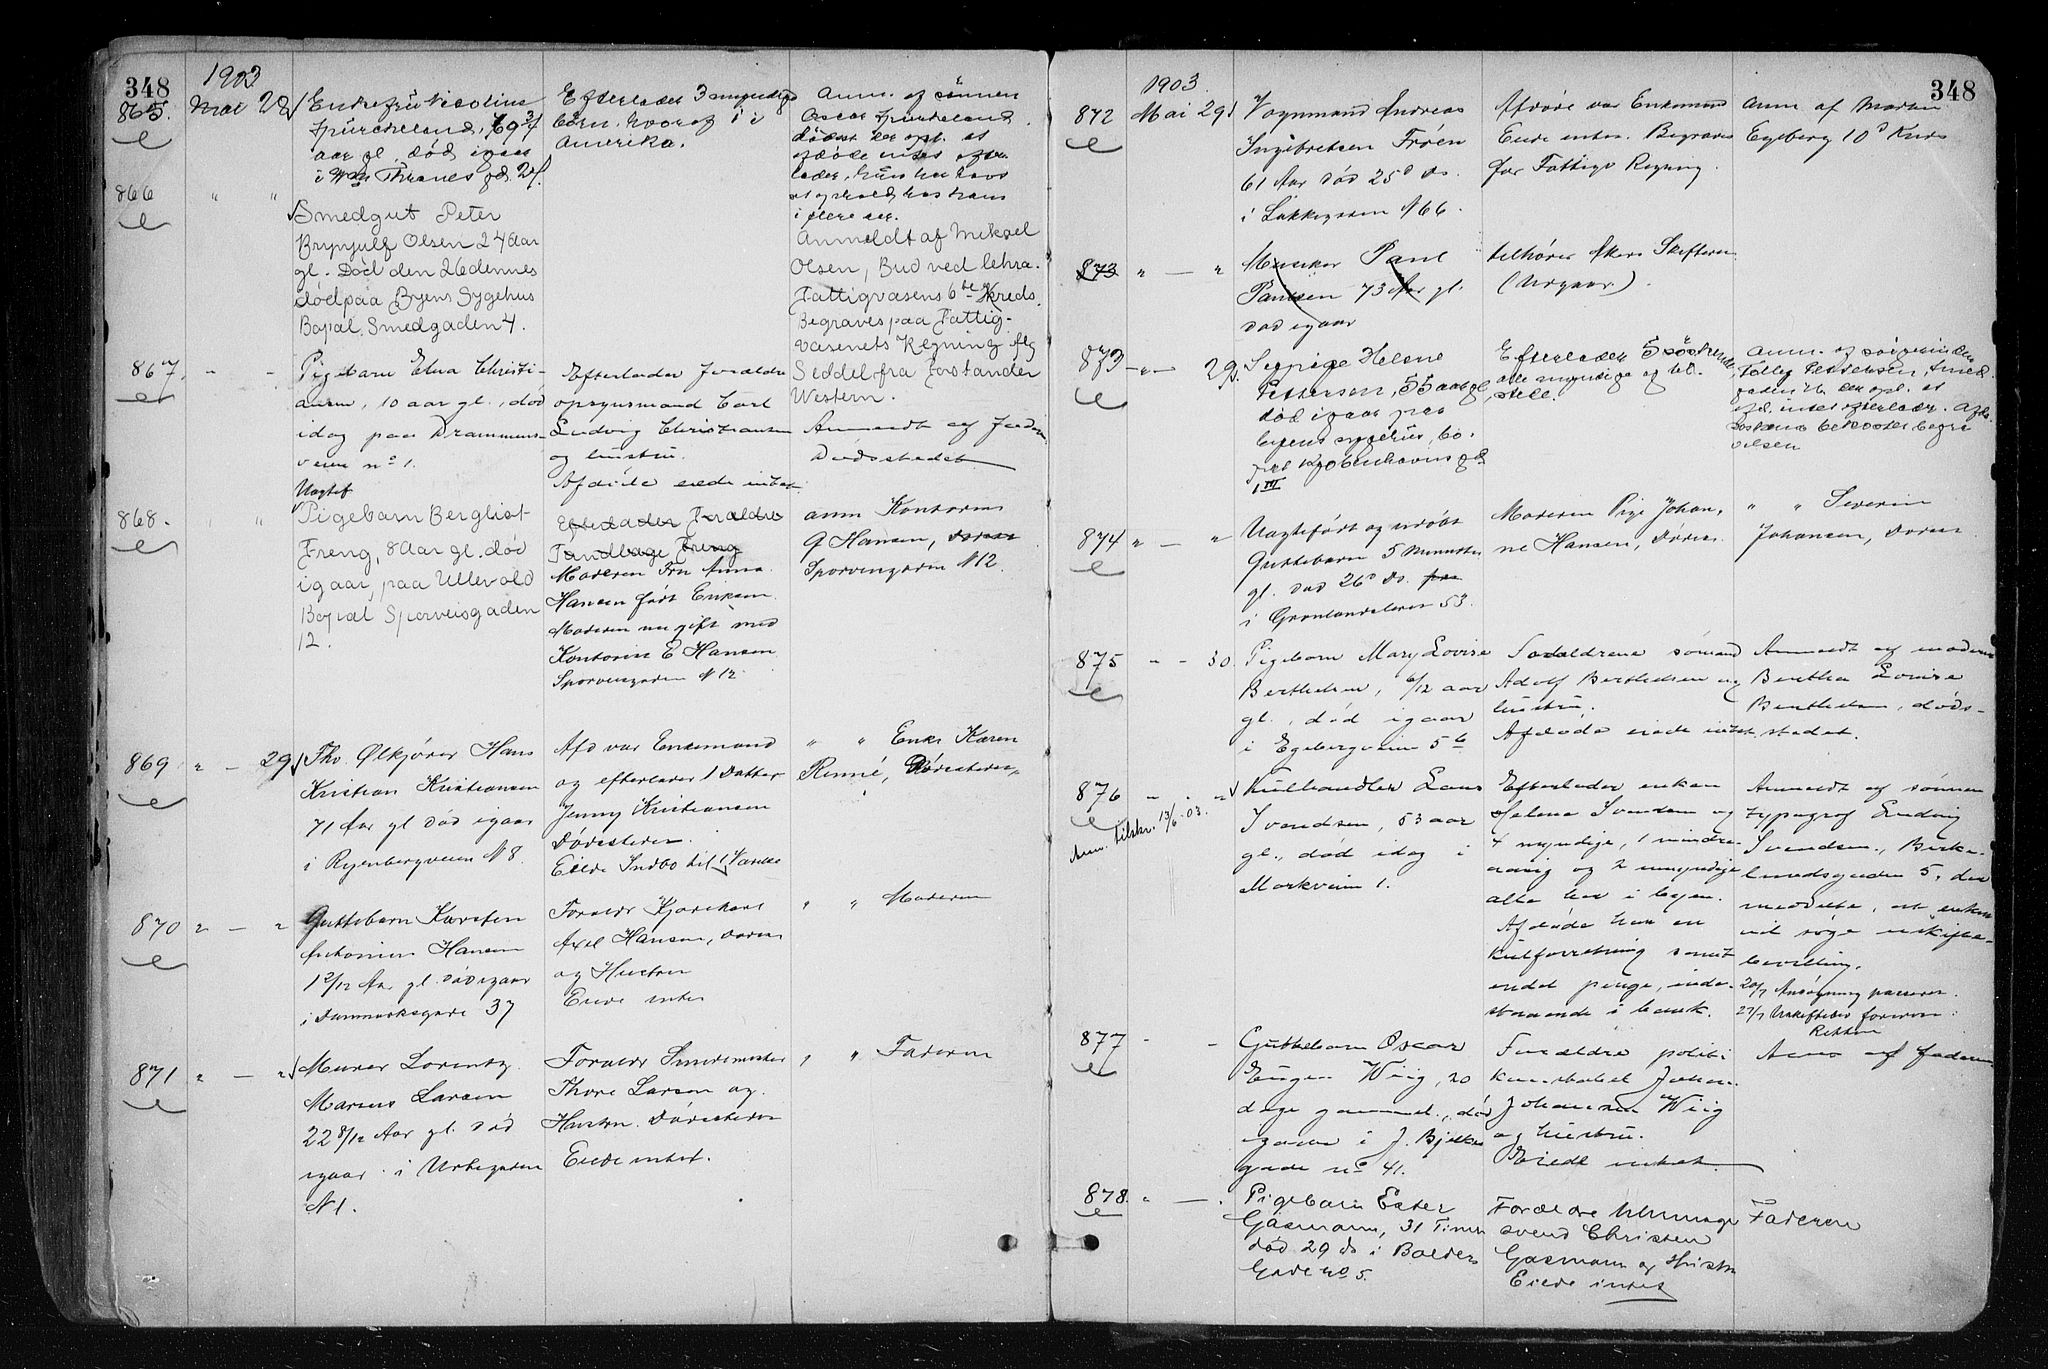 348
1903
865. Mai 28
Enkefru Nicoline
aar gl. død
i Thranes gd. 21.
Efterlader 3 myndige
børn, hvoraf 1 i
Amerika.
Anm. af sønnen
Oscar
afdøde intet efter-
lader, hun har havt
i flere aar.
866 " "
Smedgut Peter
Brynjulf Olsen 24 Aar
gl. Død den 26 dennes
død paa Byens Sygehus
Bopæl. Smedgaden 4.
Anmeldt af Mikael
Olsen, Bud ved Chra.
Fattigvæsens 6te Kreds.
Begraves paa Fattig-
væsenets Regning flg
Seddel fra Forstander
Western.
867. - -
Pigebarn Elna Christi-
ansen, 10 aar gl., død
idag paa Drammens-
veien no 1.
Efterlader Forældre
opsynsmand Carl
Ludvig Christiansen
og hustru.
Afdøde eiede intet.
Anmeldt af Faderen
Dødsstedet
868. " "
Uægtef
Pigebarn Bergliot
Freng, 8 Aar gl. død
igaar, paa Ullevold
Bopæl Sporveisgaden
12.
Efterlader Forældre
Tandlæge Freng
Moderen Fru Anna
Hansen født Eriksen.
Moderen nu gift med
Kontorist E Hansen
Sporveisgaden N 12.
anm Kontorist
G Hansen,
Sporveisgaden N 12.
869 " — 29
Thv. Ølkjører Hans
Kristian Kristiansen
71 Aar gl død igaar
i Ryenbergveien N 8.
Afd var Enkemand
og efterlader 1 Datter
Jenny Kristiansen
Dødsstedet.
Eiede Indbo til
" " Enke Karen
Rinné, Dødsstedet
870 " — "
Guttebarn Karsten
Antonius Hansen
1 2/12 Aar gl. død igaar
i Danmarksgade 37
Foraldr Kjørekarl
Axel Hansen,
og Hustru
Eiede intet
" " Moderen
871 " — "
Murer Lorentz
Marius Larsen
22 8/12 Aar gl. død
igaar i Urtegaden
N 1.
Foraldr Smedmester
Thore Larsen og
Hustru. Dødsstedet
Eiede intet.
" " Faderen
348
1903.
872 Mai 29
Vognmand Andreas
Ingebretsen Frøen
61 Aar død 25d ds.
i Løkkegaden N 66.
Afdøde var Enkemand
Eiede intet. Begraves
for Fattigv Regning.
Anm af Morten
Egeberg 10d Kreds
873 " — "
Musiker Paul
Paulsen 73 Aar gl.
død igaar
tilhører Akers Skifteret
(Udgaar).
873 — " — 29.
Sypige Helene
Pettersen, 55 aar gl
død igaar paa
byens sygehus, bo-
pæl Kjøbenhavnsgd
1 III
Efterlader 5 søskende,
alle myndige og til-
stede.
afd. intet efterlader.
bekoster begra
velsen
874 " — "
Uægteført og udøbt
Guttebarn 5 Minutter
gl. død 26d ds. paa
i Grønlandsleret 53.
Moderen Pige Johan,
ne Hansen, Dødsst.
" " Severin
Johansen,
875 - - 30.
Pigebarn Mary Lovise
Berthelsen, 6/12 aar
gl., død igaar
i Egebergveien 5b
Forældrene sømand
Adolf Berthelsen og
hustru.
Afdøde eiede intet.
Anmeldt af moderen
Berthea Lovise
Berthelsen, døds-
stedet.
876 - - "
Ann. tilskr. 13/6 03.
Kulhandler Lars
Svendsen, 53 aar
gl., død idag i
Markveien 1.
Efterlader enken
Helene Svendsen og
4 myndige, 1 mindre-
aarig og 2 umyndige
alle her i byen.
Afdøde har en
kulforretning samt
endel penge, inde-
staaende i bank.
Anmeldt af sønnen
typograf Ludvig
Svendsen, Birke-
lundsgaden 5, der
meddelte, at enken
vil søge uskifte-
bevilling.
20/7 Ansøgning passerer.
27/7 Uskiftebev forevist
Retten
877 - -
Guttebarn Oscar
Eugen Wiig, 20
dage gammel, død
igaar i J. Bjelkes
gade no 41.
Forældre politi
konstabel Johan
Johansen Wiig
og hustru.
Eiede intet.
Anm af faderen
878. " — .
Pigebarn Ester
Gasmann, 31 Timer
død 29 ds i Balders
Gade no 5.
Forældre
svend Christen
Gasmann og Hustru
Eiede intet
Faderen